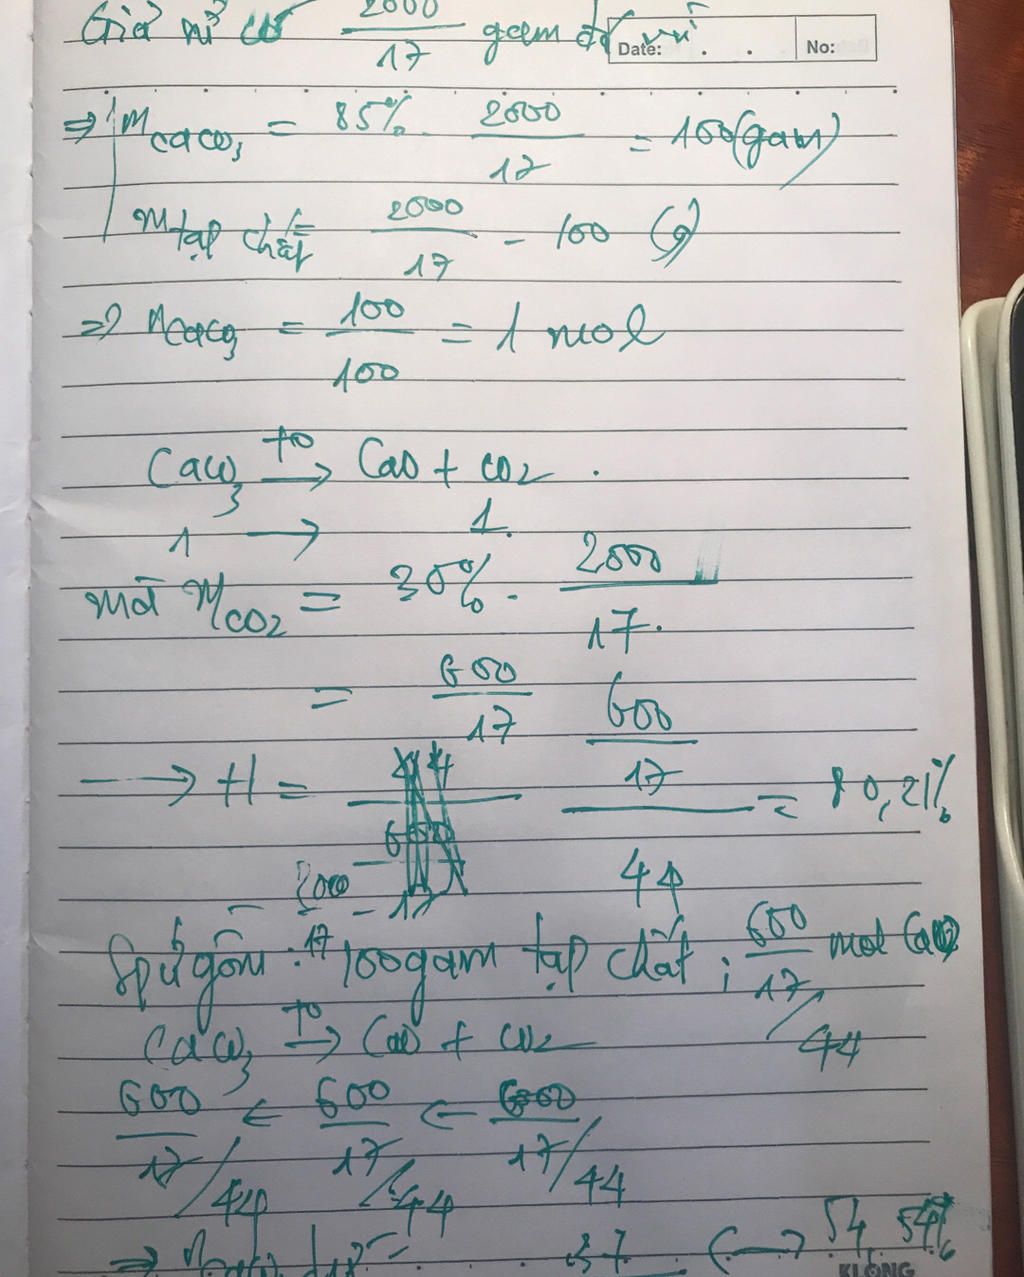 Giả sử có 2000/17 gam đá vôi
Date: . . No:
=> mCaCO3 = 85% . 2000/17 = 100 (gam)
m tạp chất = 2000/17 - 100 (g)
=> nCaCO3 = 100/100 = 1 mol
CaCO3 →to CaO + CO2 .
1 → 1.
mà mCO2 = 30% . 2000/17.
= 600/17
→ H = 600/17 / 44 = 80,21%
Spứ gồm : 2000/17 - 100 gam tạp chất ; 600/17/44 mol CaO
CaCO3 →to CaO + CO2
600/17/44 ← 600/17/44 ← 600/17/44
=> nCaCO3 dư = 37 54,54%
KLONG